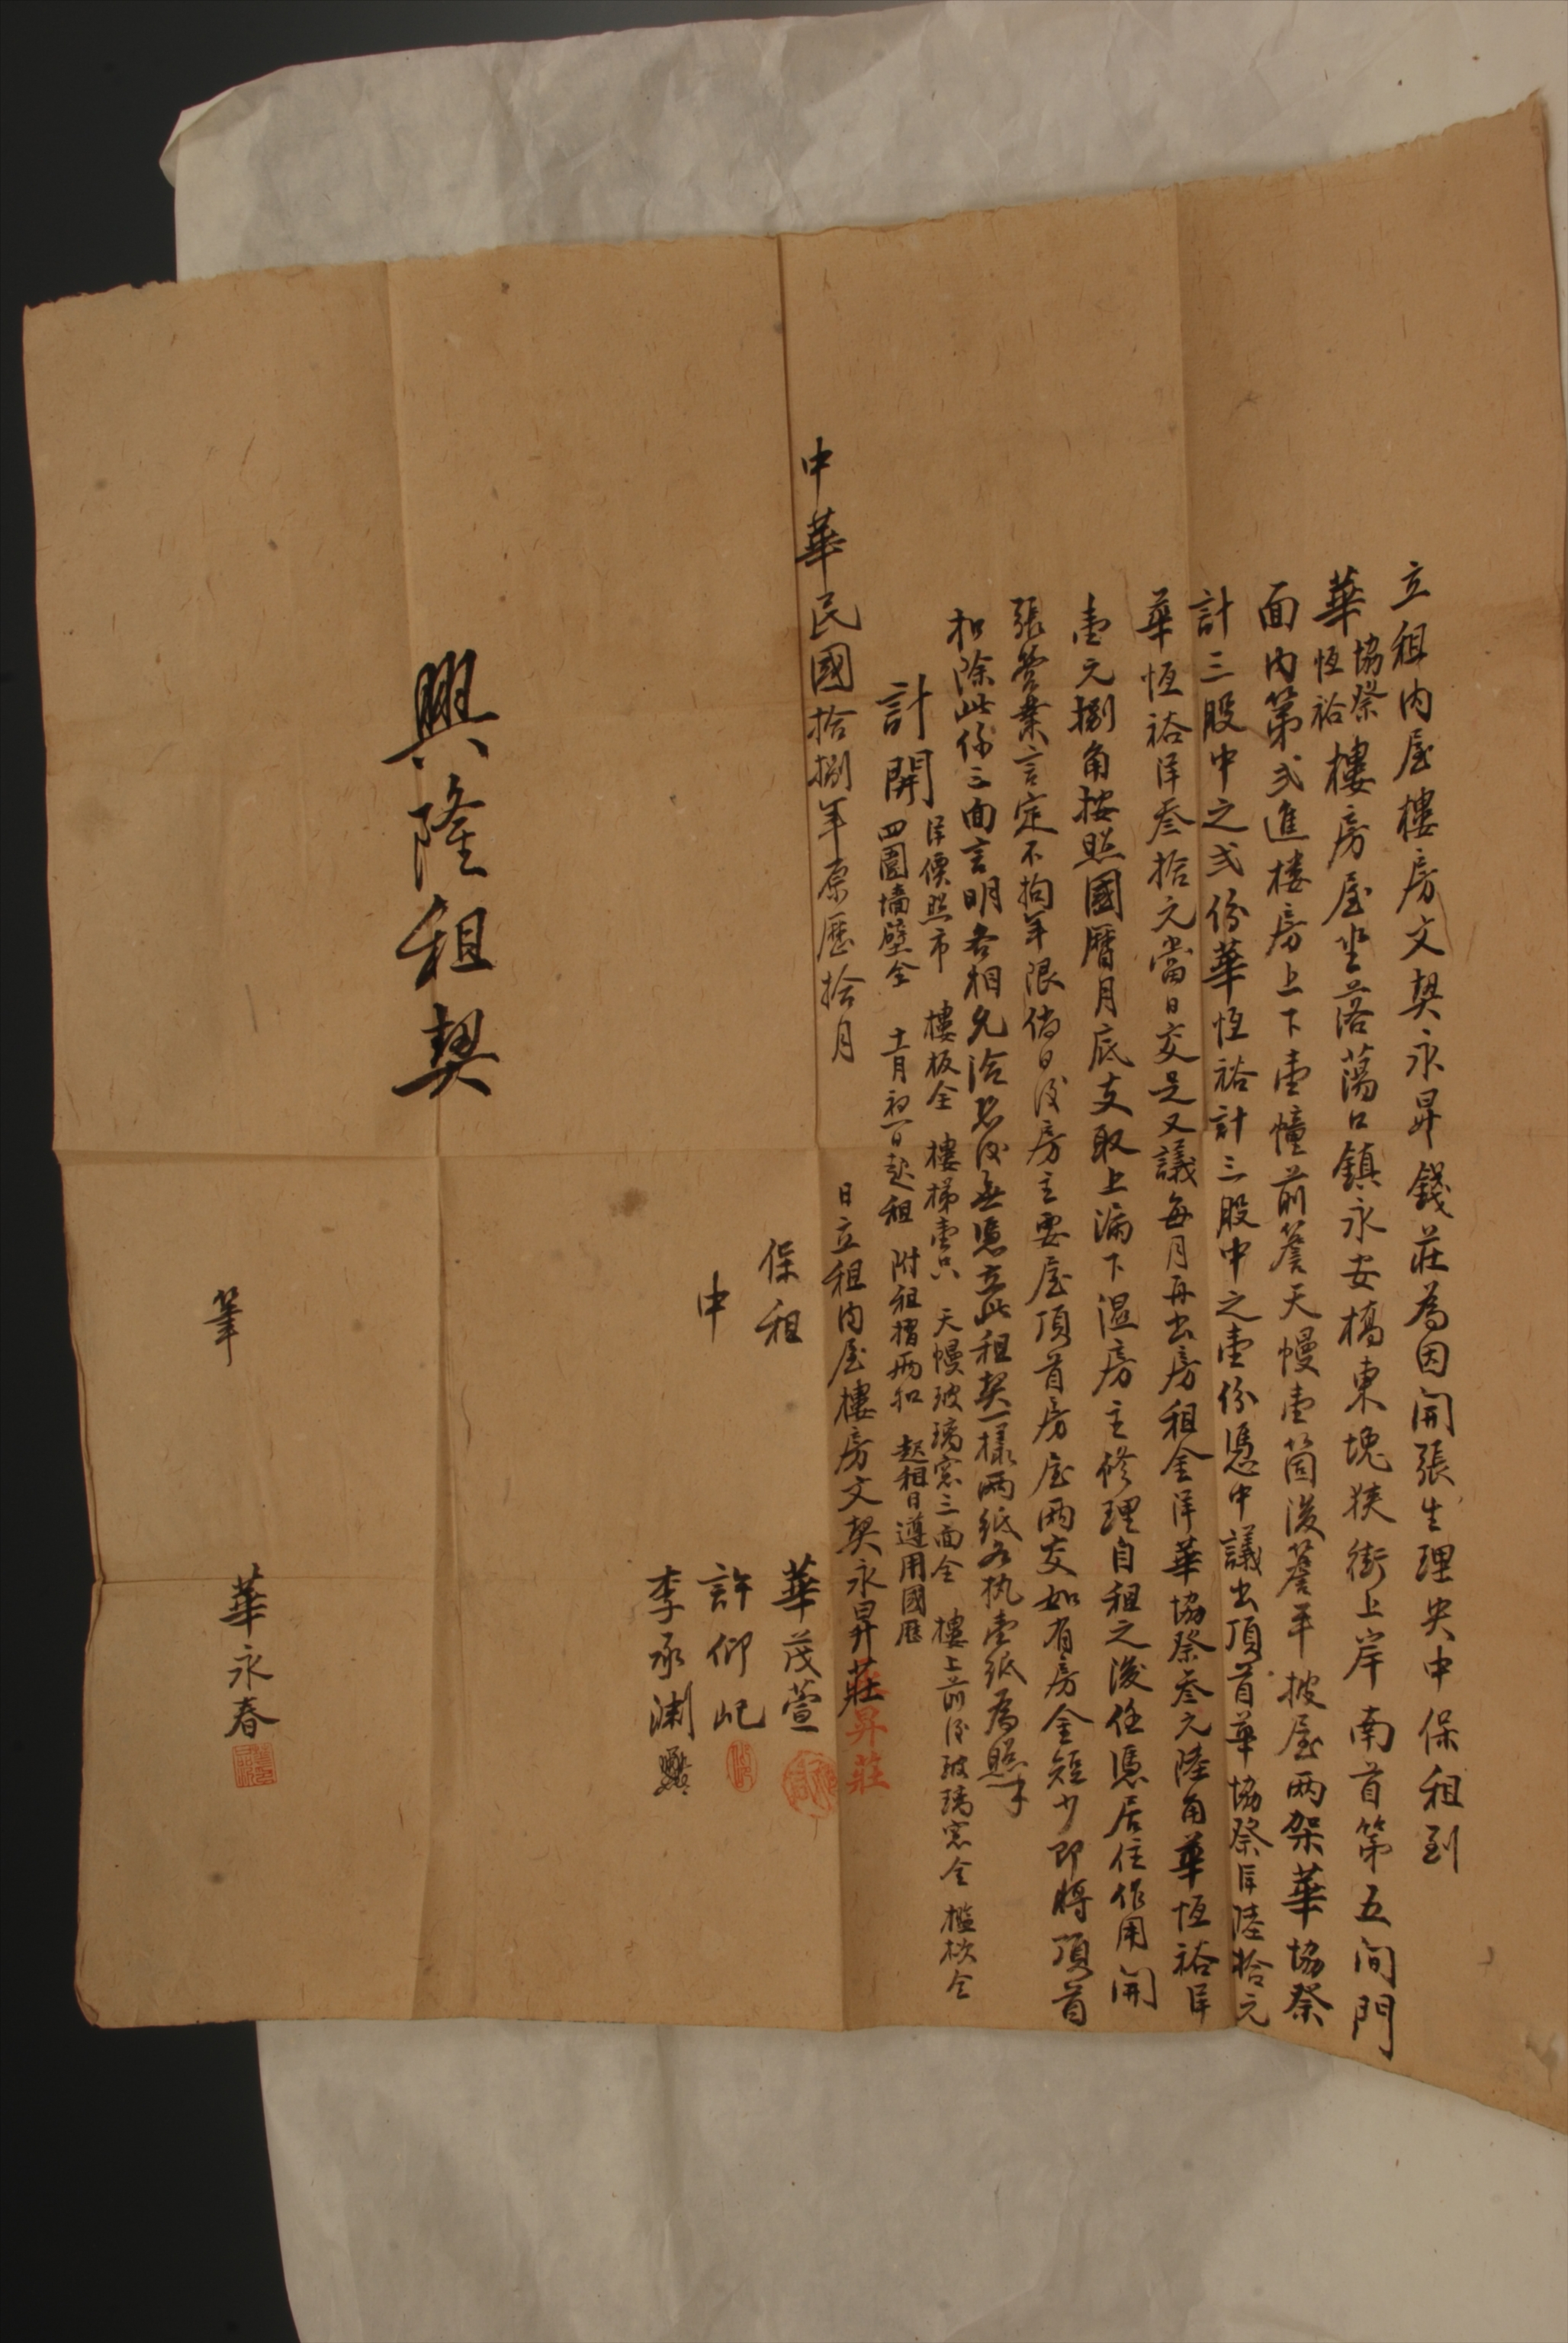 立租內屋樓房文契永昇錢莊爲因開張生理央中保租到
華協祭恆裕樓房屋坐落蕩口鎮永安橋東塊狹街上岸南首第五間門
面內第弍進楼房上下壹幢前簷天幔壹箇後簷平披屋两架華協祭
計三股中之弍份華恆裕計三股中之壹份憑中議出頂首華協祭洋陸拾元
華恆裕洋叁拾元當日交足又議每月再出房租金洋華協祭叁元陸角華恆裕洋
壹元捌角按照國曆月底支取上漏下濕房主修理自租之後任憑居住作用開
張營業言定不拘年限倘日後房主要屋頂首房屋兩交如有房金短少即將頂首
扣除此係三面言明各相允洽恐後無憑立此租契一樣兩紙各执壹紙爲照
計開 洋價照市 樓板全 樓梯壹只 天幔玻璃窓三面全 樓上前後玻璃窓全 檻栨全
四圍墻壁全 十一月初一日起租 附租摺兩扣 起租日遵用國歷
中華民國拾捌年原歷拾月 日立租內屋樓房文契永昇莊
昇莊
保租 華茂萱
中 許仰屺
李承渊
興隆租契
筆 華永春